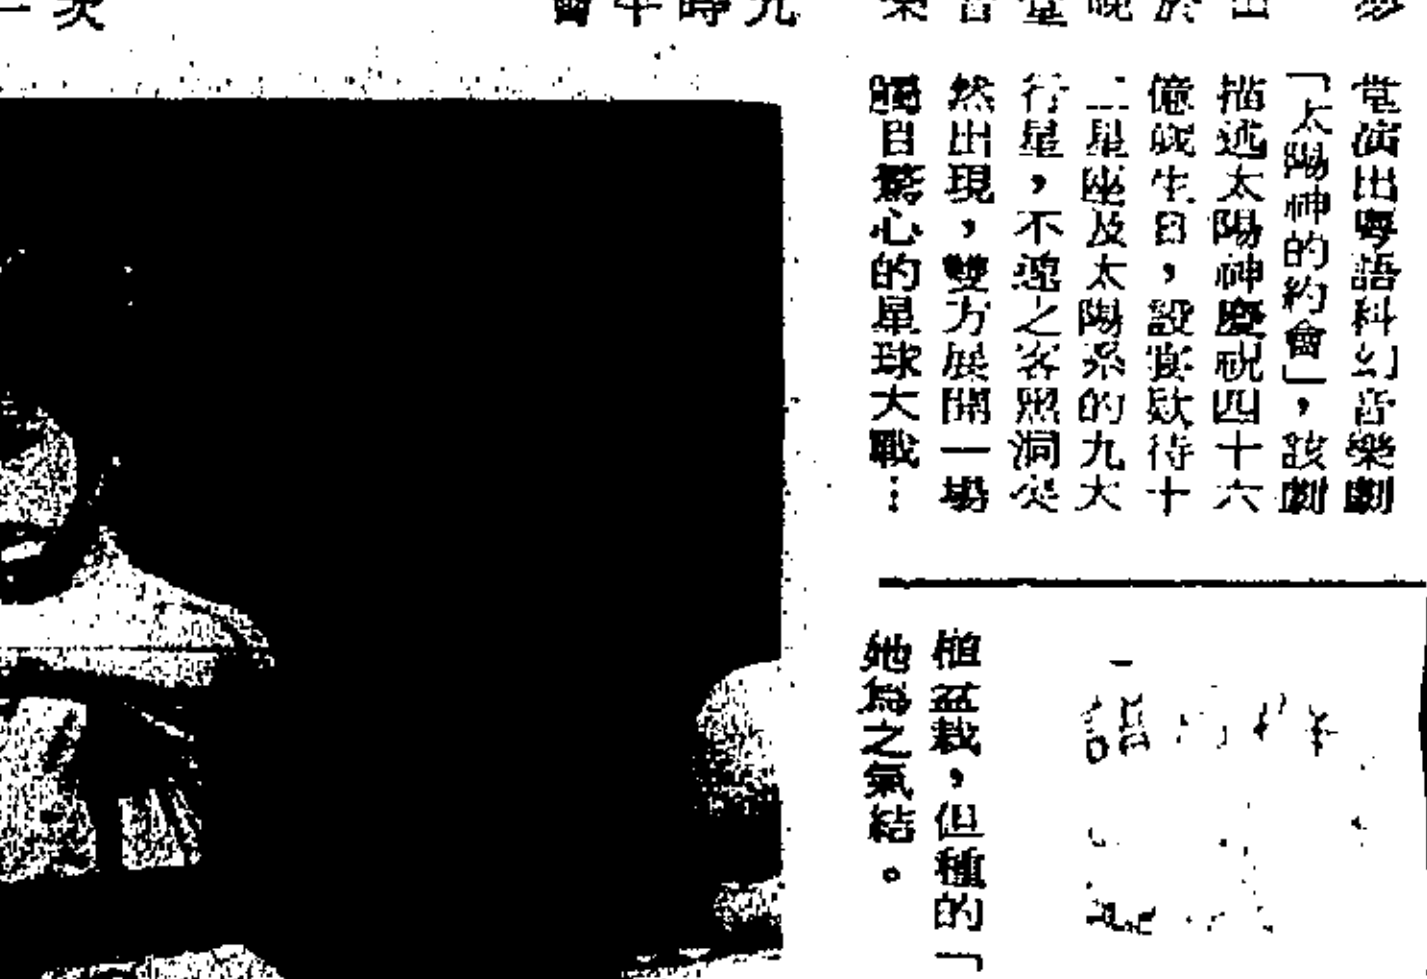 堂演出粵語科幻音樂劇
「太陽神的約會」，該劇
描述太陽神慶祝四十六
億歲生日，設宴款待十
二星座及太陽系的九大
行星，不速之客黑洞突
然出現，雙方展開一場
觸目驚心的星球大戰…
植盆栽，但種的「
她為之氣結。
九時半會
次一